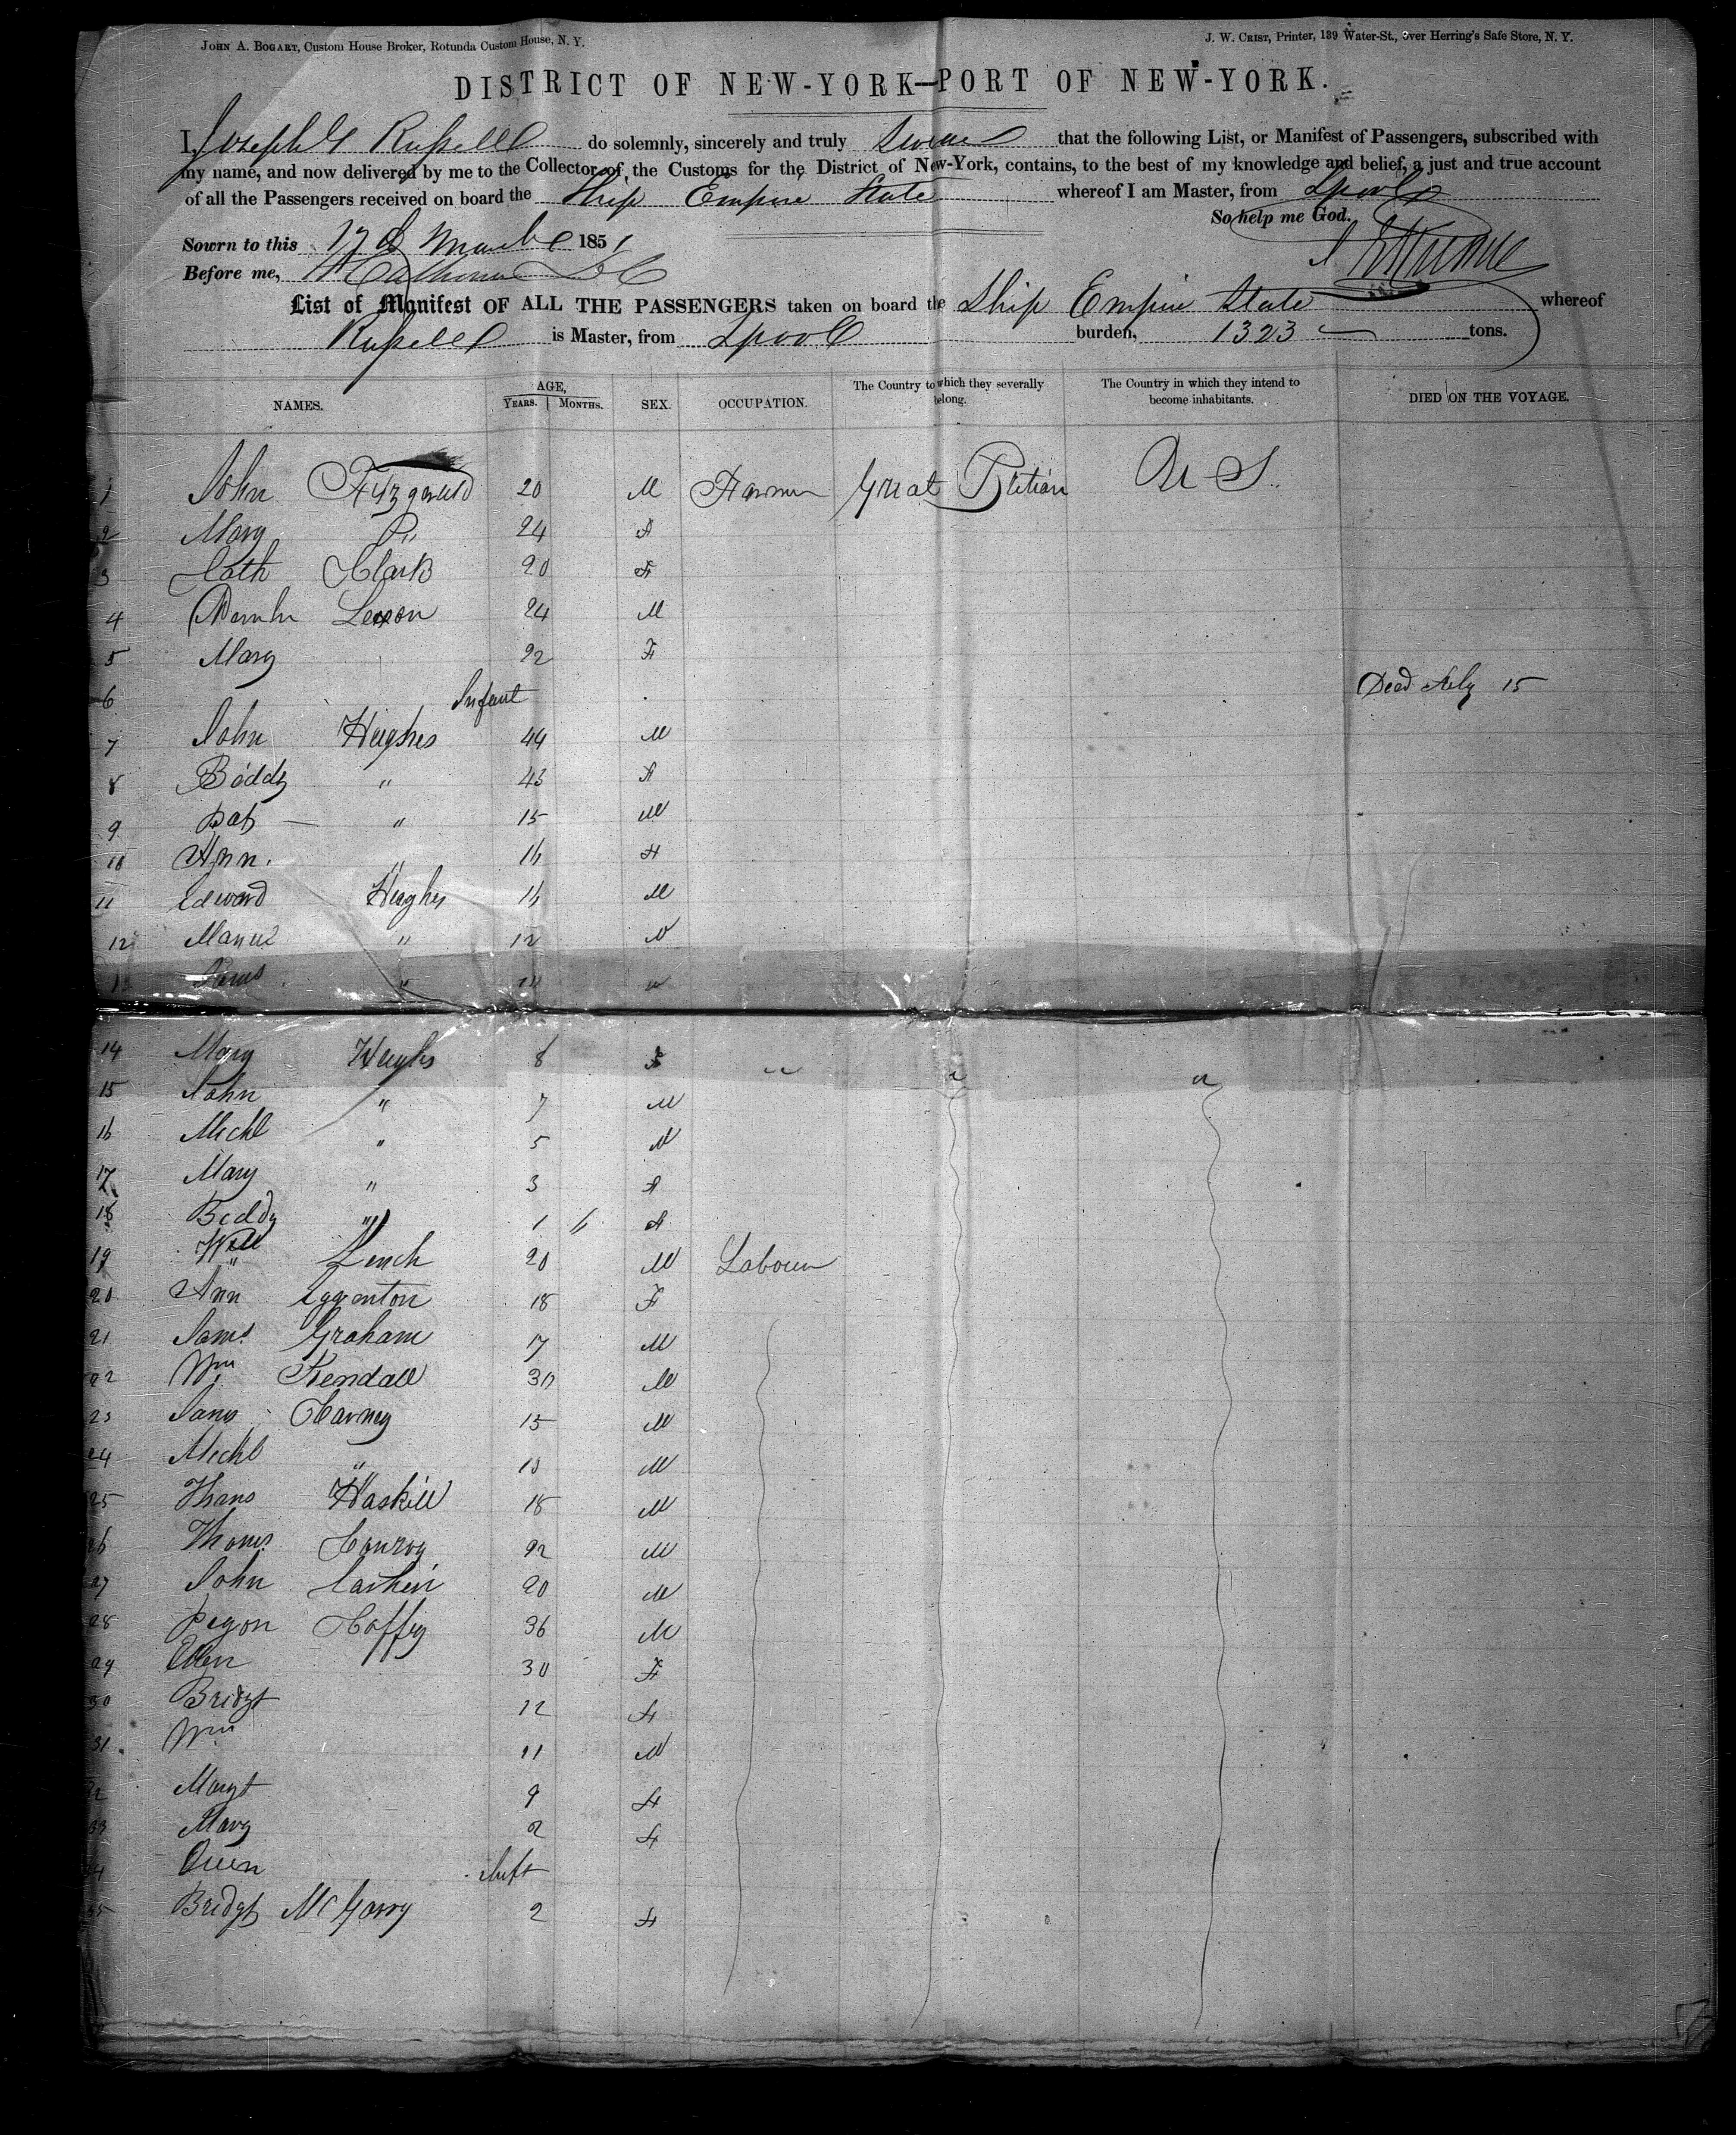 JOHN A. BOGART, Custom House Broker, Rotunda Custom House, N. Y.
J. W. CRIST, Printer, 139 Water-St., over Herring's Safe Store, N. Y.
DISTRICT OF NEW-YORK—PORT OF NEW-YORK.
I, Joseph G Russell do solemnly, sincerely and truly swear that the following List, or Manifest of Passengers, subscribed with
my name, and now delivered by me to the Collector of the Customs for the District of New-York, contains, to the best of my knowledge and belief, a just and true account
of all the Passengers received on board the Ship Empire State whereof I am Master, from Lpool
So help me God.
Sowrn to this 17 d March 1851
Before me,
List of Manifest OF ALL THE PASSENGERS taken on board the Ship Empire State whereof
Russell is Master, from Lpool burden, 1323 tons.
NAMES. AGE, YEARS. MONTHS. SEX. OCCUPATION. The Country to which they severally belong. The Country in which they intend to become inhabitants. DIED ON THE VOYAGE.
1 John Fitzgerald 20 M Farmer Great Britian U S.
2 Mary 24 F
3 Cath Clark 20 F
4 Lexon 24 M
5 Mary 22 F
6 Infant Died 15
7 John Hughes 44 M
8 Biddy " 43 F
9 Pat " 15 M
10 Ann. " 16 F
11 Edward Hughes 16 M
12 Manus " 12 M
13 James " M
14 Mary Hughs 8 F " " "
15 John " 7 M
16 Michl " 5 M
17 Mary " 3 F
18 Biddy " 1 6 F
19 Will Linch 20 M Labourer
20 Ann Eggenton 18 F
21 Jams Graham 17 M
22 Wm Kendall 30 M
23 James Carney 15 M
24 Michl " 10 M
25 Thans Haskill 18 M
26 Thoms Conroy 22 M
27 John Larkin 20 M
28 Pegon Coffey 36 M
29 Ellen 30 F
30 Bridgt 12 F
31 Wm 11 M
32 Margt 9 F
33 Mary 2 F
34 Owen Inft
35 Bridgt McGarry 2 F